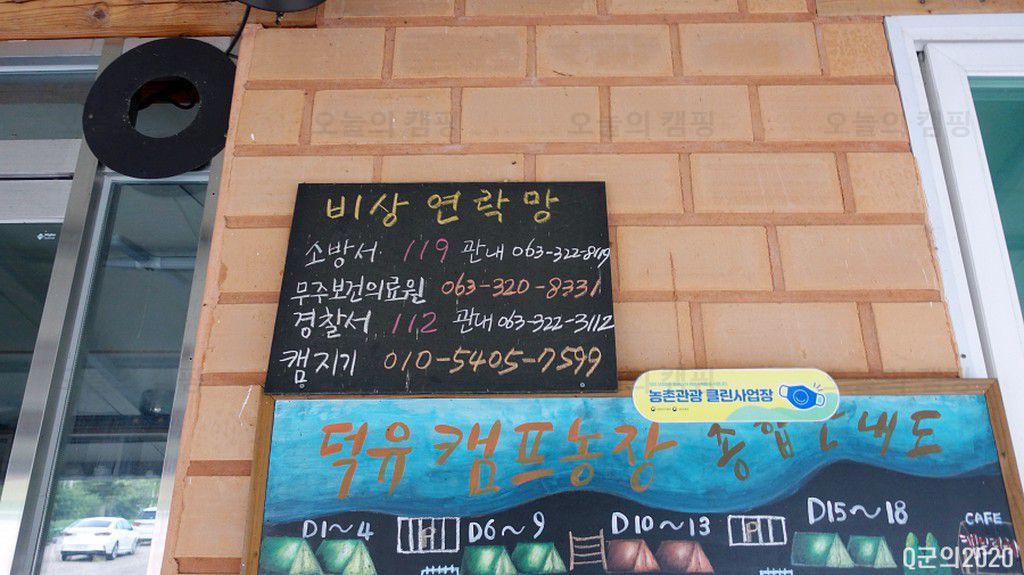 오늘의 캠핑 오늘의 캠핑 오늘의 캠핑
비상 연락망
소방서 119 관내 063-322-8119
무주보건의료원 063-320-8331
경찰서 112 관내 063-322-3112
캠지기 010-5405-7599
농촌관광 클린사업장
덕유캠프농장 종합안내도
D1~4 D6~9 D10~13 D15~18 CAFE
Q군의2020